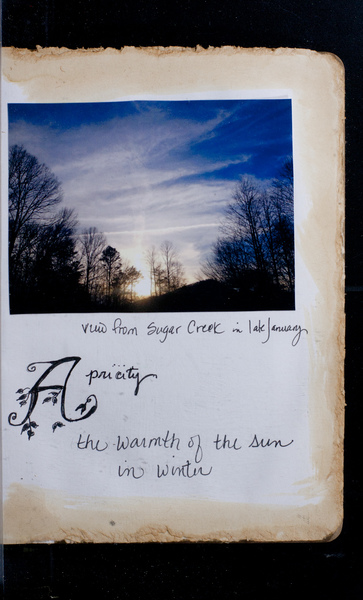 view from Sugar Creek in late January
Apricity
the warmth of the sun
in winter